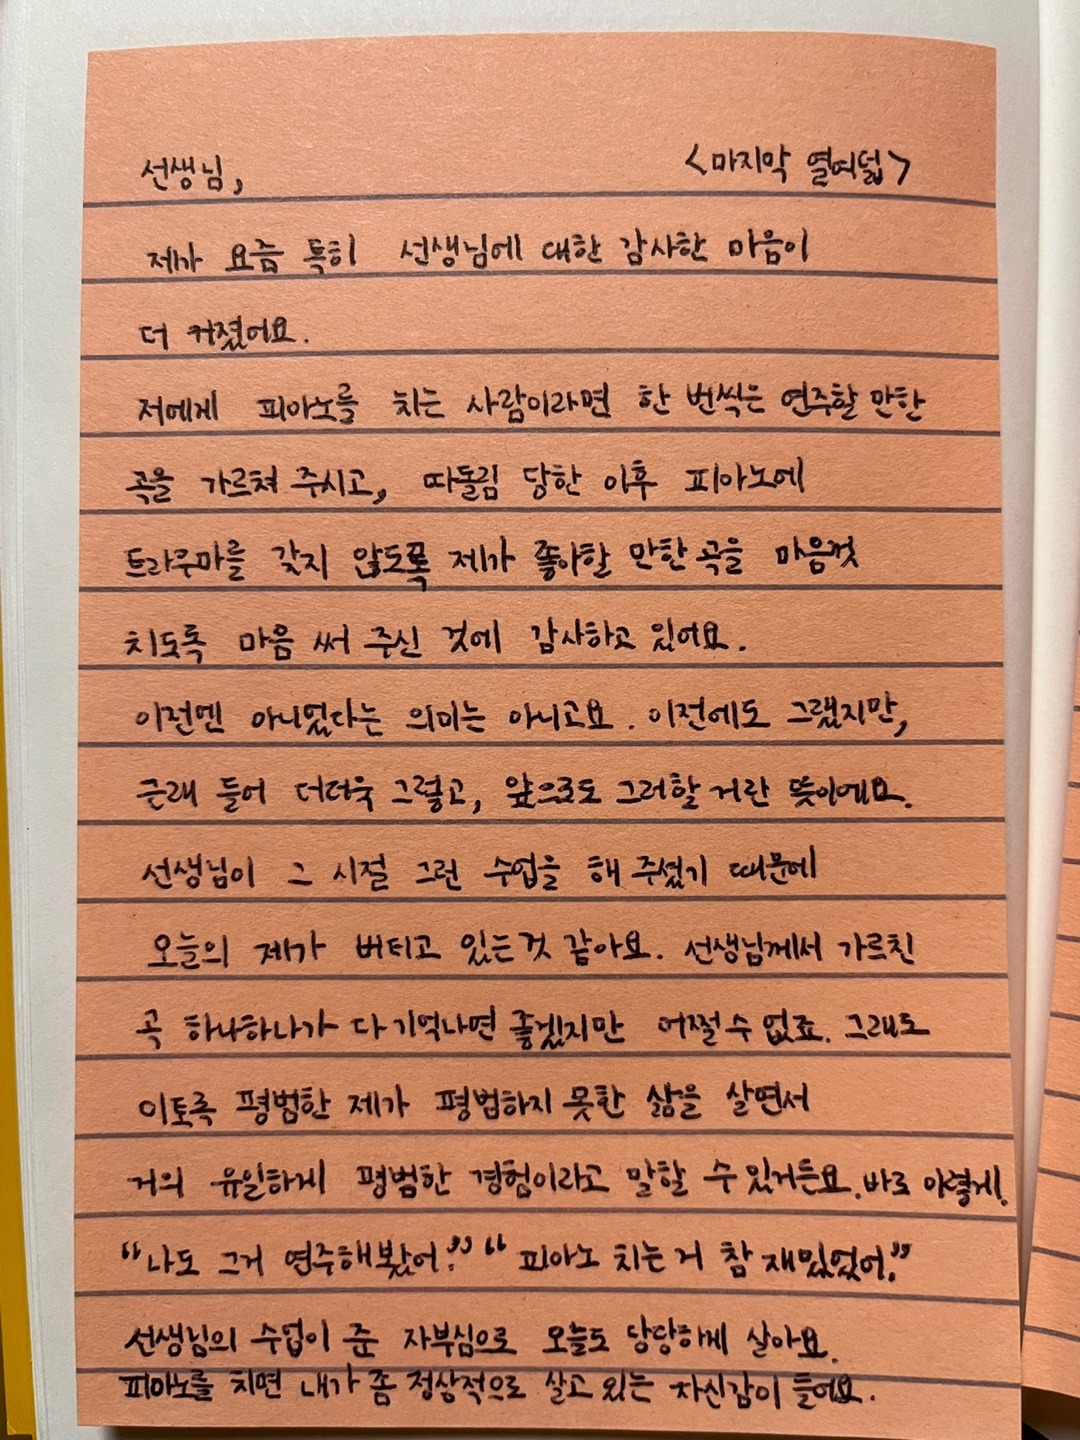 선생님, <마지막 열여덟>
제가 요즘 특히 선생님에 대한 감사한 마음이
더 커졌어요.
저에게 피아노를 치는 사람이라면 한 번씩은 연주할 만한
곡을 가르쳐 주시고, 따돌림 당한 이후 피아노에
트라우마를 갖지 않도록 제가 좋아할 만한 곡을 마음껏
치도록 마음 써 주신 것에 감사하고 있어요.
이전엔 아니었다는 의미는 아니고요. 이전에도 그랬지만,
근래 들어 더더욱 그렇고, 앞으로도 그러할 거란 뜻이에요.
선생님이 그 시절 그런 수업을 해 주셨기 때문에
오늘의 제가 버티고 있는 것 같아요. 선생님께서 가르친
곡 하나하나가 다 기억나면 좋겠지만 어쩔 수 없죠. 그래도
이토록 평범한 제가 평범하지 못한 삶을 살면서
거의 유일하게 평범한 경험이라고 말할 수 있거든요. 바로 이렇게.
“나도 그거 연주해봤어.” “피아노 치는 거 참 재밌었어.”
선생님의 수업이 준 자부심으로 오늘도 당당하게 살아요.
피아노를 치면 내가 좀 정상적으로 살고 있는 자신감이 들어요.